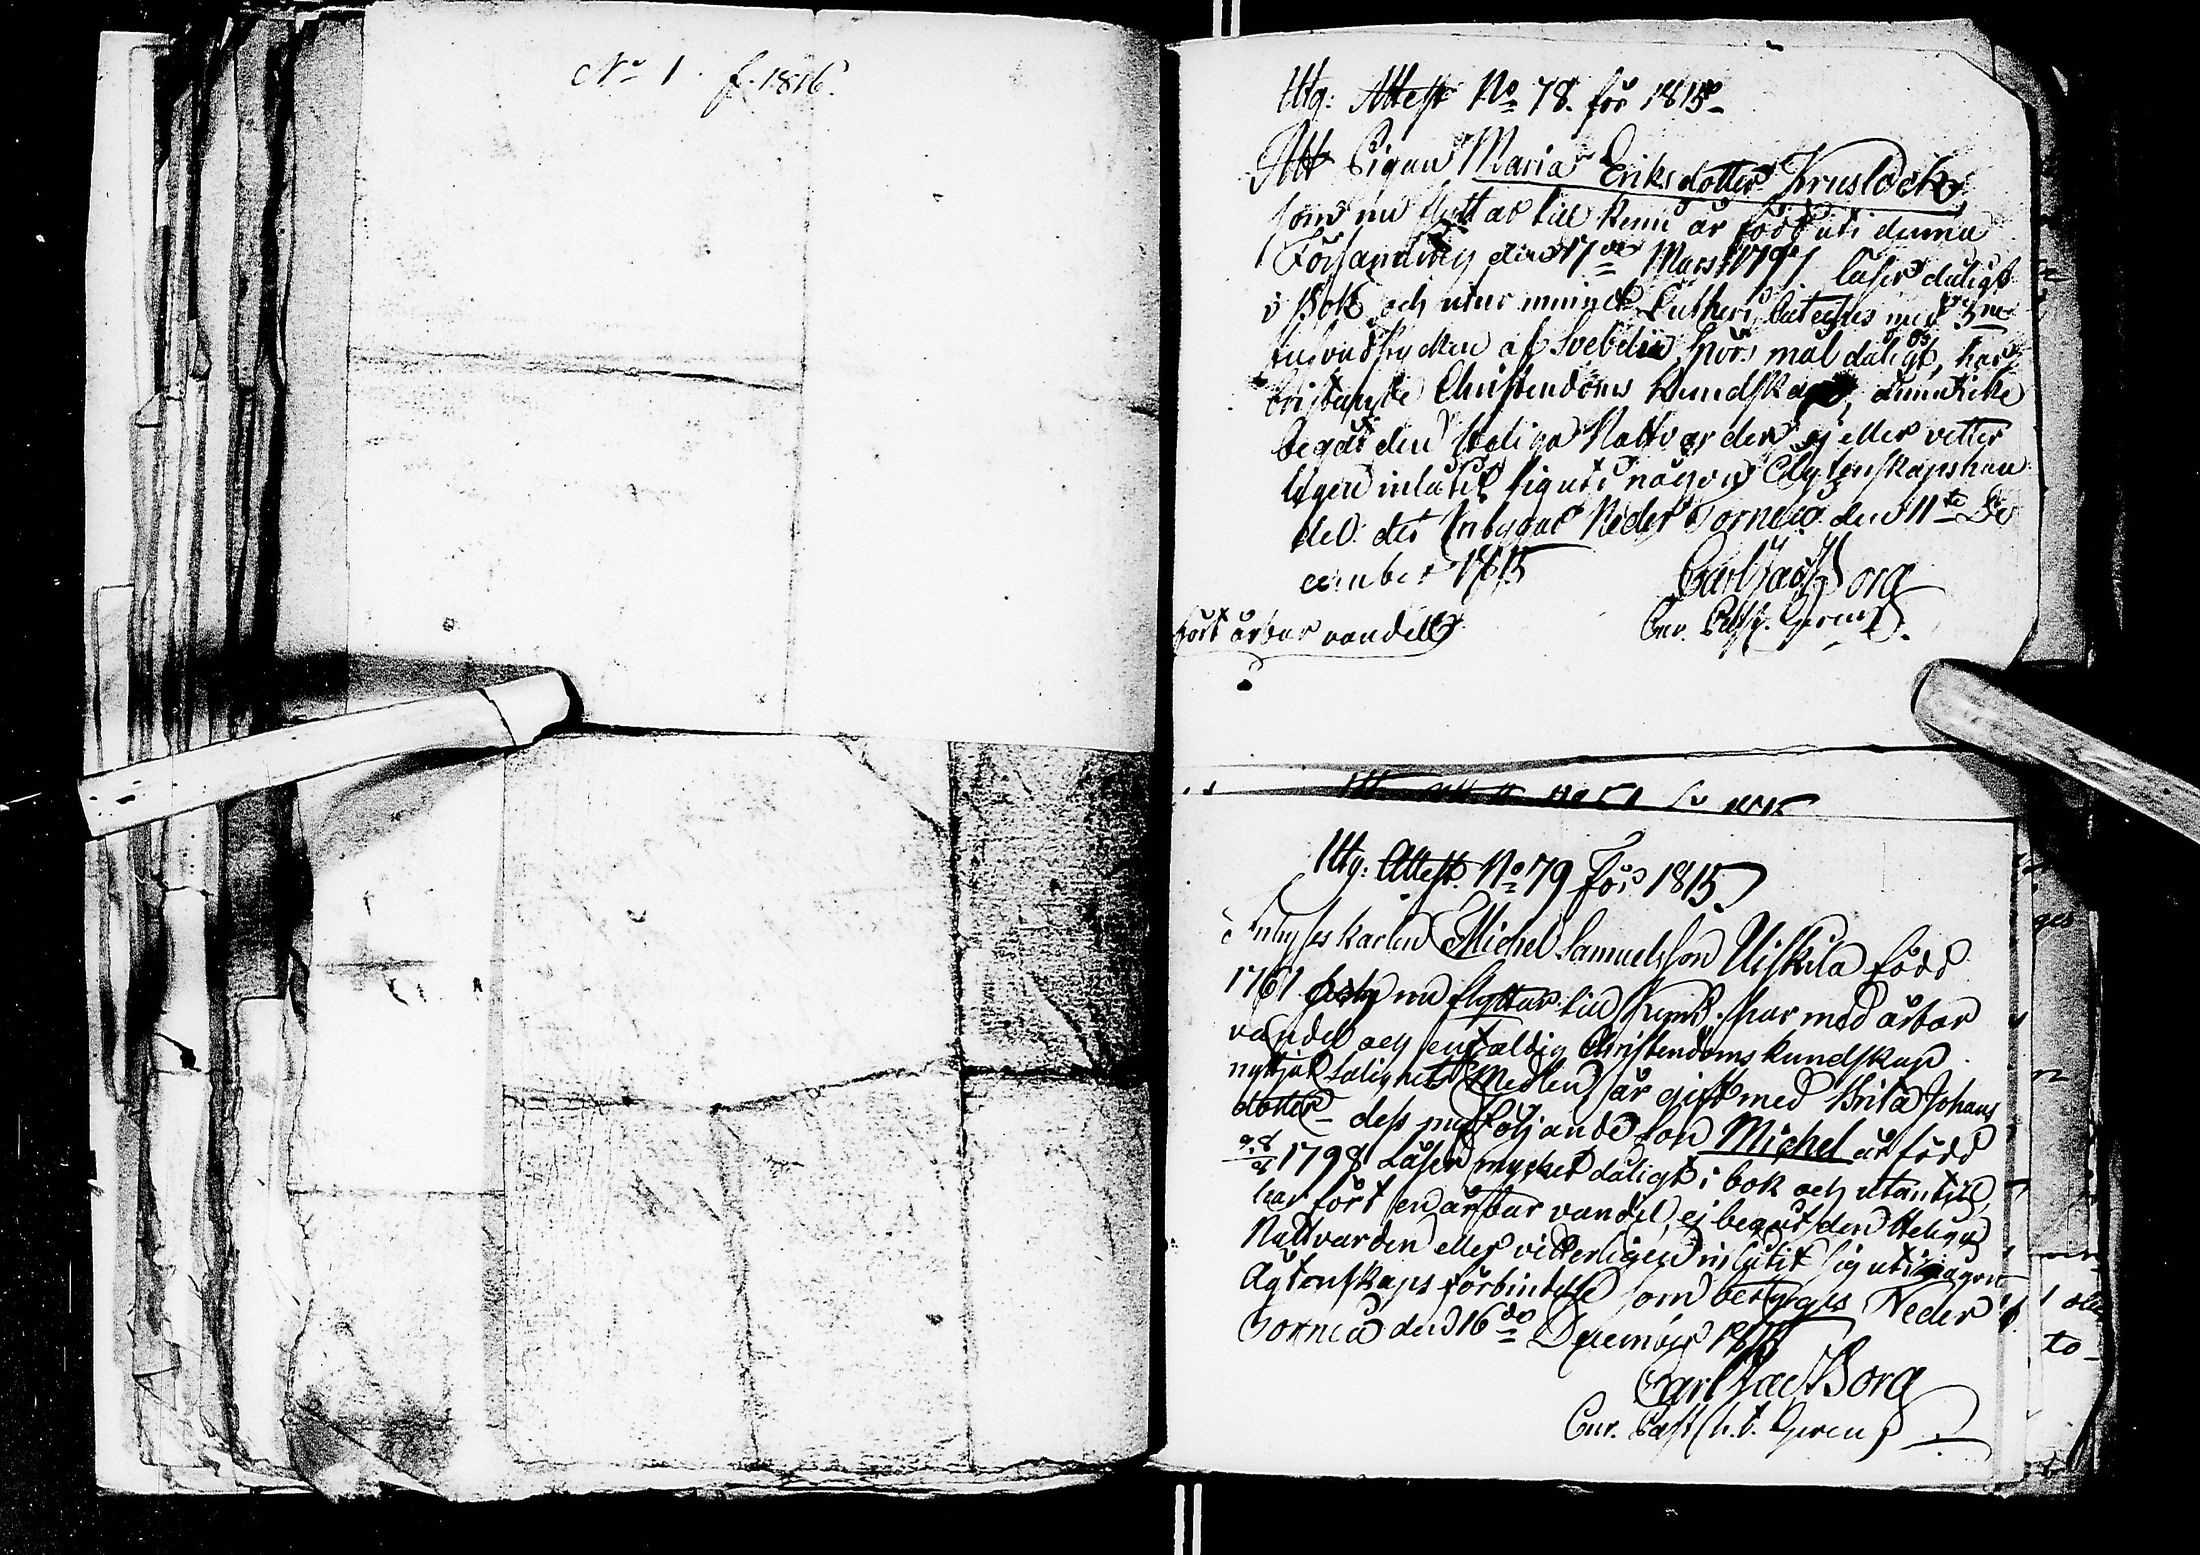 No 1. f. 1816.
Utg: Attest No 78. för 1815
Att Pigan Maria Eriksdotter Kruslock
som nu flyttar till Kemi är född uti denna
Församling den 17de Mars 1797. läser dåligt
i Bok och utur minnet Lutheri Cateches med 3ne
hufvudstycken af Svebelii Spörsmål dåligt, har
Christendoms Kundskap, ännu icke
begått den Heliga Nattvarden ej eller vetter
ligen inlåtit sig uti någon Ägtenskapshan
del. det intygar Neder Torneå den 11te De
cember 1815
Carl Jac Borg
Cur. Past. Gerens.
fört ärbar vandel
Utg: Attest. No 79 För 1815.
Inhyses karlen Michel Samuelsson Uiskila född
1761 nu flyttar till Kemi. har med ärbar
vandel och enfaldig Christendoms kundskap
nyttjat Salighets Medlen, är gift med Brita Johans
dotter – dess medföljande son Michel är född
1798 Läser mycket dåligt i bok och utantill,
har fört en ärbar vandel, ej begått den Heliga
Nattvarden eller vitterligen inlåtit sig uti någon
Ägtenskaps förbindelse som betygas Neder
Torneå den 16de December 1815
Carl Jac Borg
Cur. Past. h. t. Gerens
ges
n
to